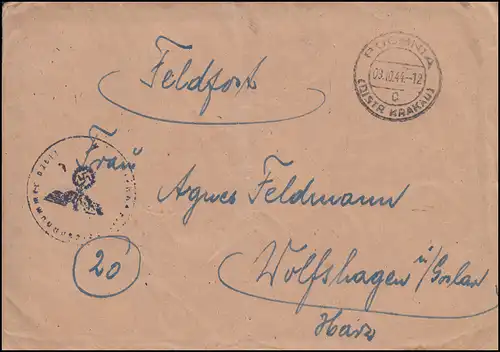 BOCHNIA
09.10.44.-12
c
(DISTR. KRAKAU)
Feldpost
Frau
Agnes Feldmann
20
Wolfshagen ü/Goslar
Harz